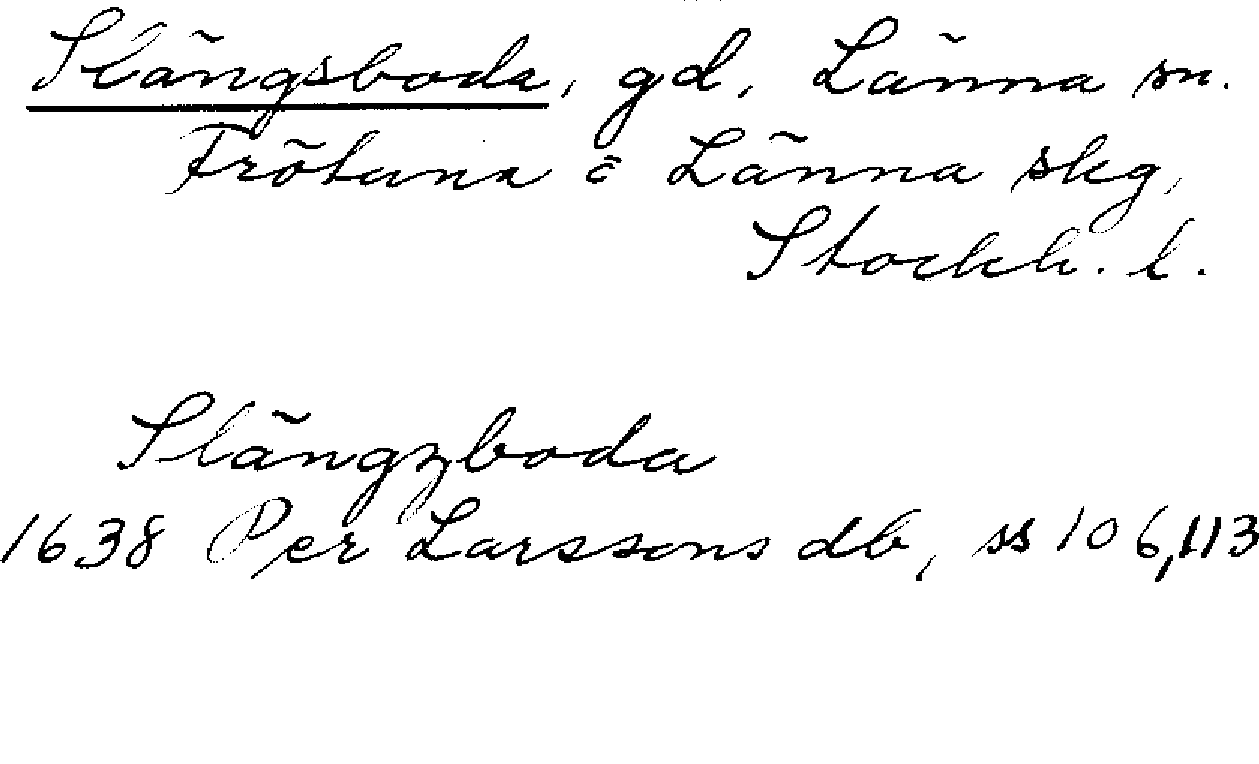 Slängsboda, gd, Länna sn.
Frötuna o Länna skg,
Stockh. l.
Slängzboda
1638 Per Larssons db, ss 106,113